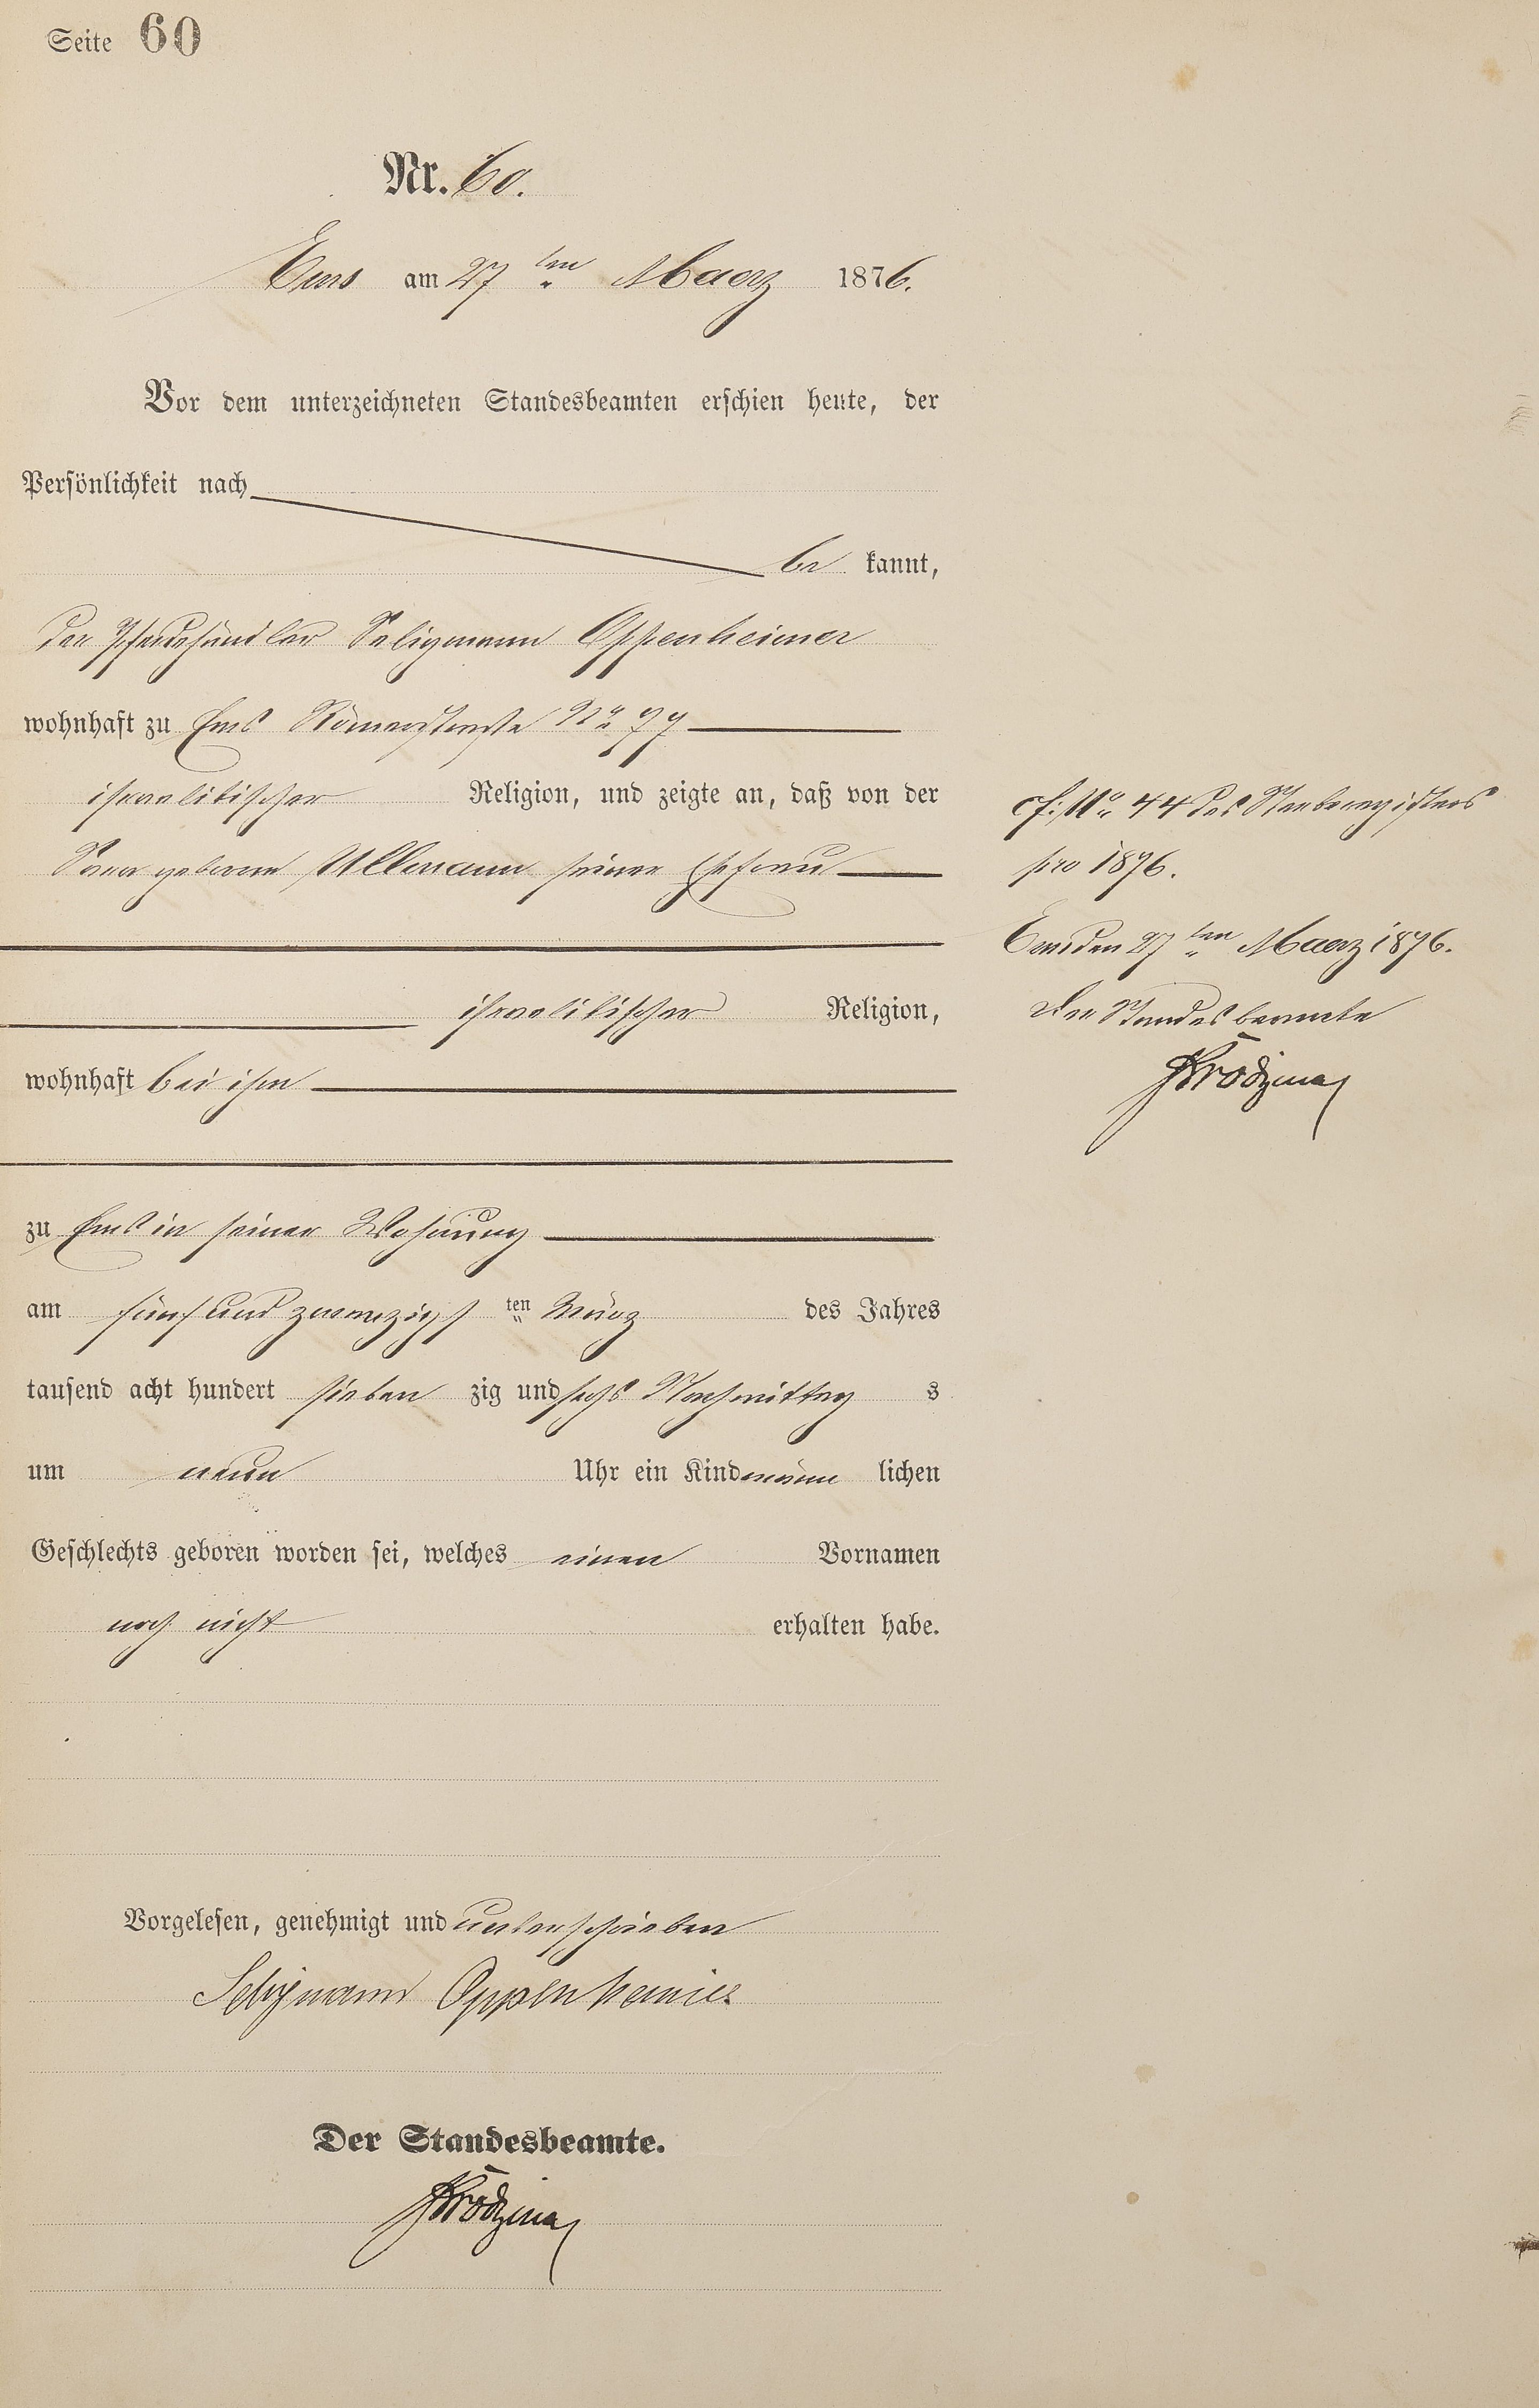 Seite 60
Nr. 60.
Ems am 27ten Maerz 1876.
Vor dem unterzeichneten Standesbeamten erschien heute, der
Persönlichkeit nach
be kannt,
der Pferdehändler Seligmann Oppenheimer
wohnhaft zu Ems Römerstraße No 77
israelitischer Religion, und zeigte an, daß von der
Sara geborene Ullmann seiner Ehefrau
israelitischer Religion,
wohnhaft bei ihm
zu Ems in seiner Wohnung
am fünf und zwanzigst ten März des Jahres
tausend acht hundert sieben zig und sechs Nachmittag s
um neun Uhr ein Kind männ lichen
Geschlechts geboren worden sei, welches einen Vornamen
noch nicht erhalten habe.
Vorgelesen, genehmigt und unterschrieben
Seligmann Oppenheimer
Der Standesbeamte.
cf: No 44 des Sterberegisters
pro 1876.
Ems den 27ten Maerz 1876.
Der Standesbeamte